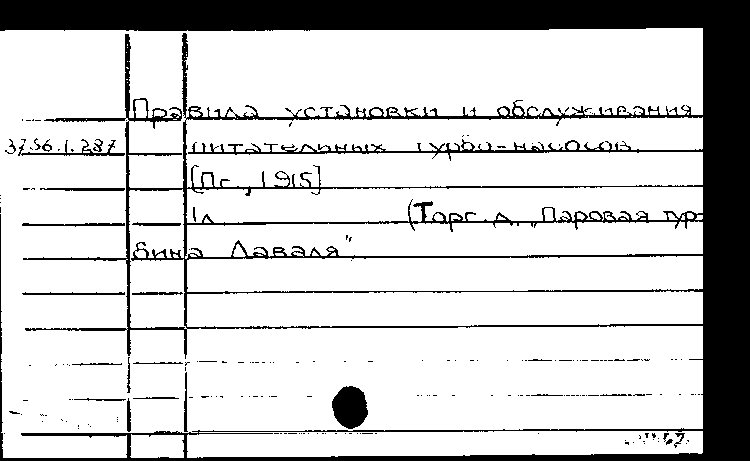 Правила установки и обслуживания
37.56.1.287 питательных турбо-насосов.
[Пг., 1915]
1л. (Торг. д. „Паровая тур-
бина Лаваля".